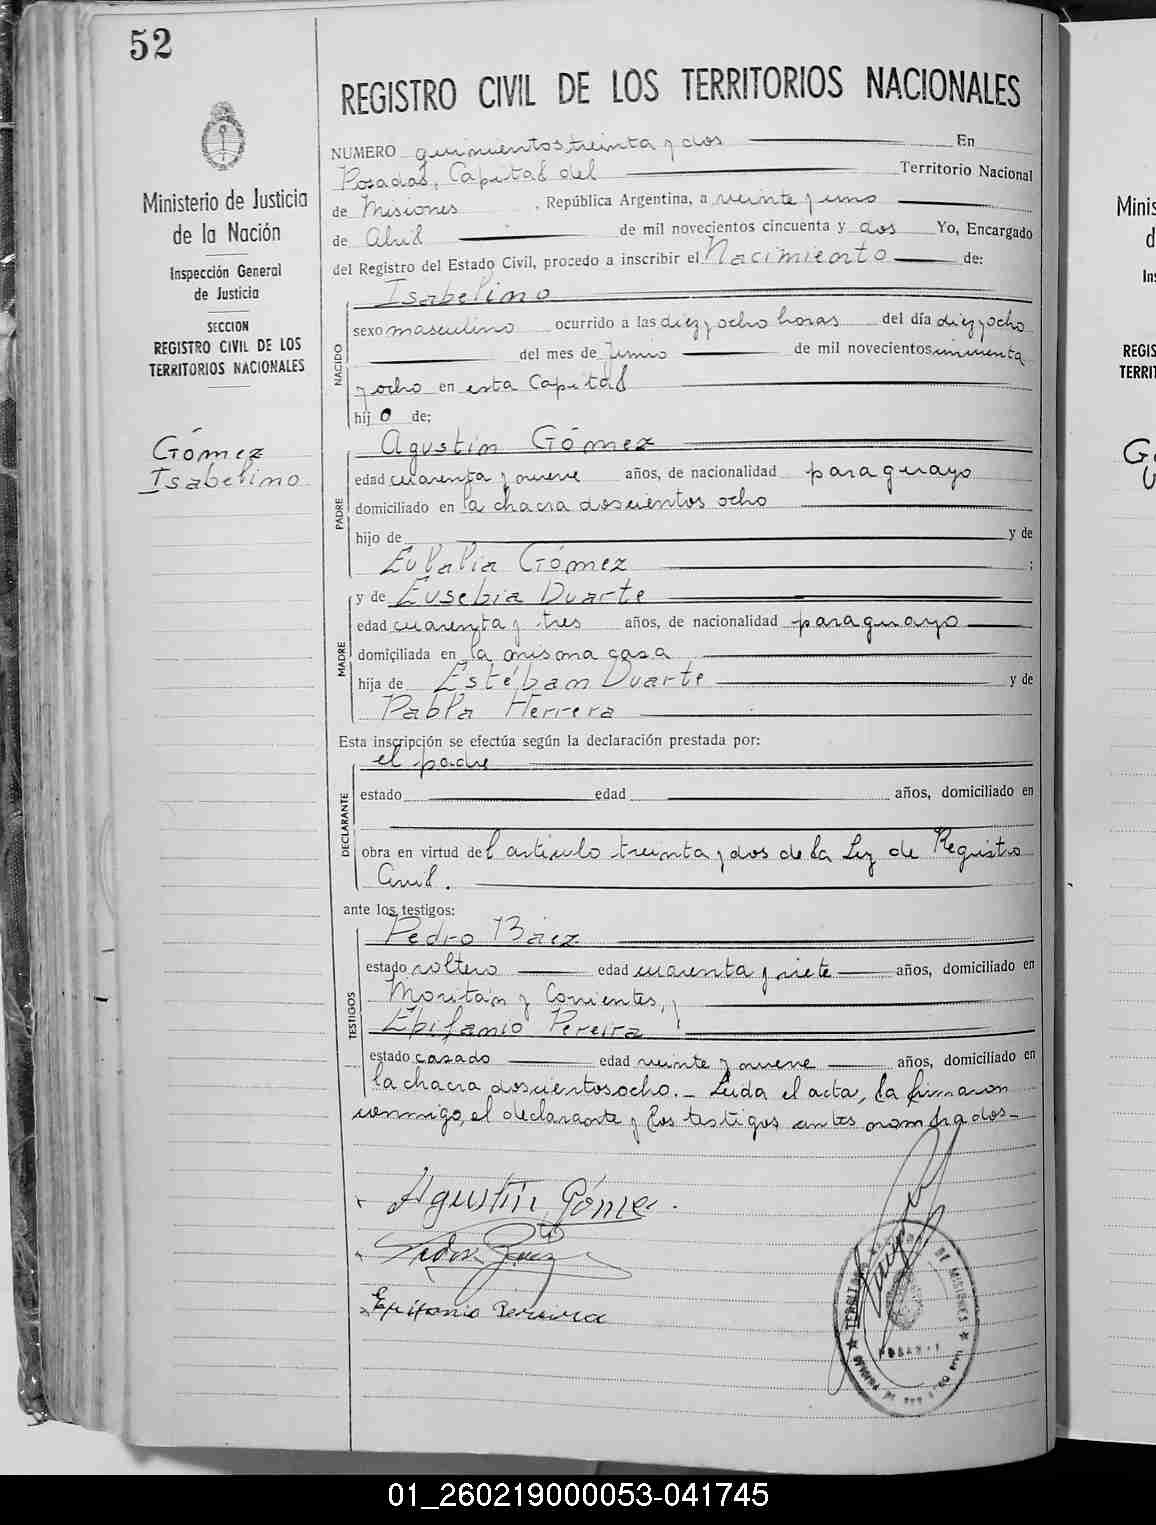 52
REGISTRO CIVIL DE LOS TERRITORIOS NACIONALES
Ministerio de Justicia
de la Nación
Inspección General
de Justicia
SECCION
REGISTRO CIVIL DE LOS
TERRITORIOS NACIONALES
Gómez
Isabelino
NUMERO quinientos treinta y dos En
Posadas, Capital del Territorio Nacional
de Misiones, República Argentina, a veinte y uno
de Abril de mil novecientos cincuenta y dos Yo, Encargado
del Registro del Estado Civil, procedo a inscribir el Nacimiento de:
NACIDO
Isabelino
sexo masculino ocurrido a las diez y ocho horas del día diez y ocho
del mes de Junio de mil novecientos
y ocho en esta Capital
hijo de:
PADRE
Agustín Gómez
edad cuarenta y nueve años, de nacionalidad paraguayo
domiciliado en la chacra doscientos ocho
hijo de y de
Eulalia Gómez ;
MADRE
y de Eusebia Duarte
edad cuarenta y tres años, de nacionalidad paraguayo
domiciliada en la misma casa
hija de Estéban Duarte y de
Pabla Herrera
Esta inscripción se efectúa según la declaración prestada por:
DECLARANTE
el padre
estado edad años, domiciliado en
obra en virtud del artículo treinta y dos de la Ley de Registro
Civil.
ante los testigos:
TESTIGOS
Pedro Báez
estado soltero edad cuarenta y siete años, domiciliado en
Moritán y Corrientes, y
Epifanio Pereira
estado casado edad veinte y nueve años, domiciliado en
la chacra doscientos ocho. - Leida el acta, la firmaron
conmigo, el declarante y los testigos antes nombrados -
Agustín Góme
Pedro Baez
Epifanio Pereira
TERRITORIO NACIONAL DE MISIONES
POSADAS
Minis
d
Ins
REGIS
TERRIT
01_260219000053-041745